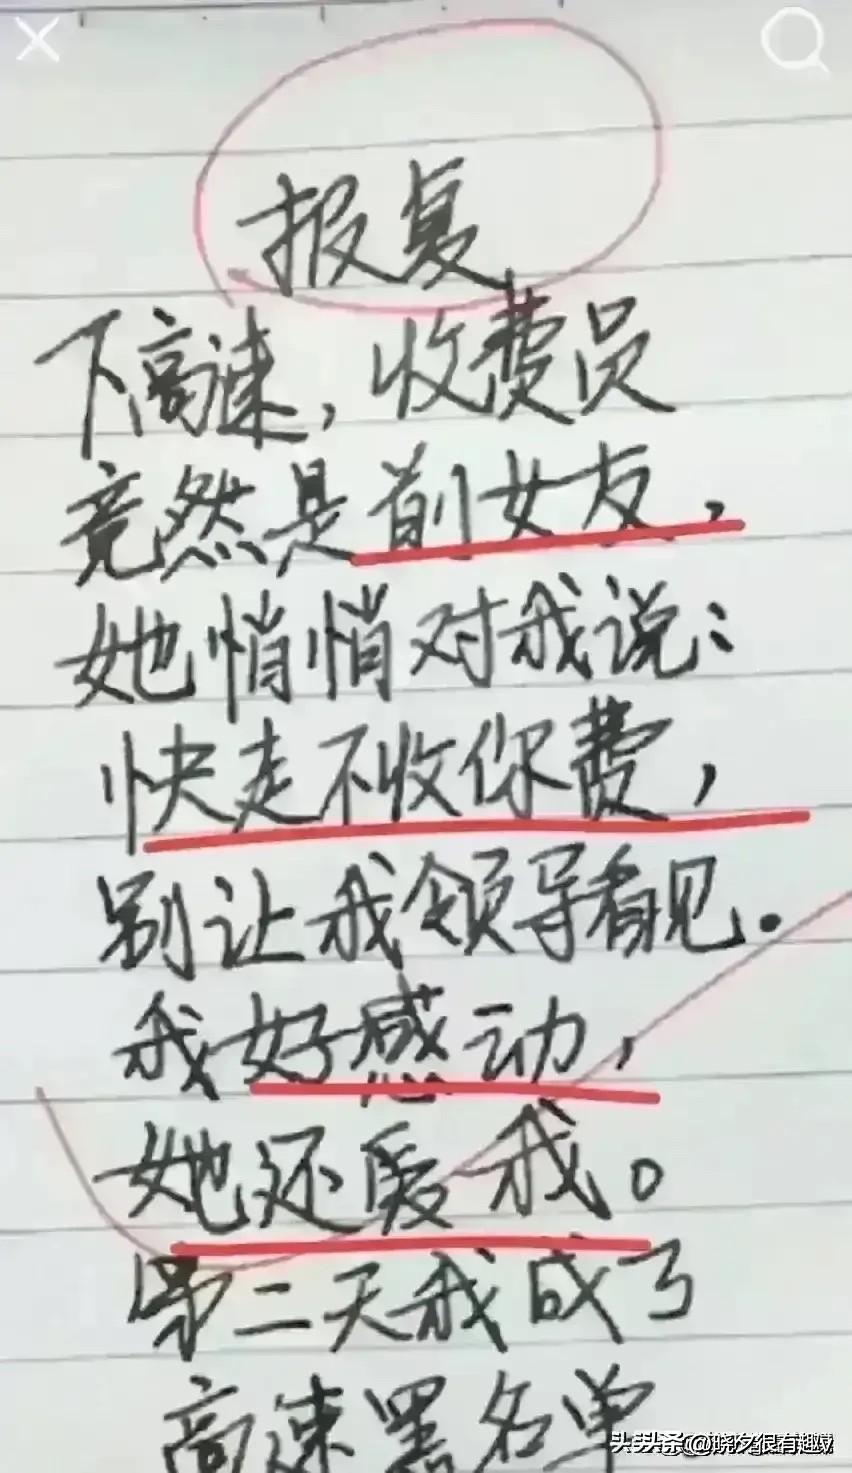 报复
下高速，收费员
竟然是前女友，
她悄悄对我说：
快走不收你费，
别让我领导看见.
我好感动，
她还爱我。
第二天我成了
高速黑名单
头条 @晓夕很有趣